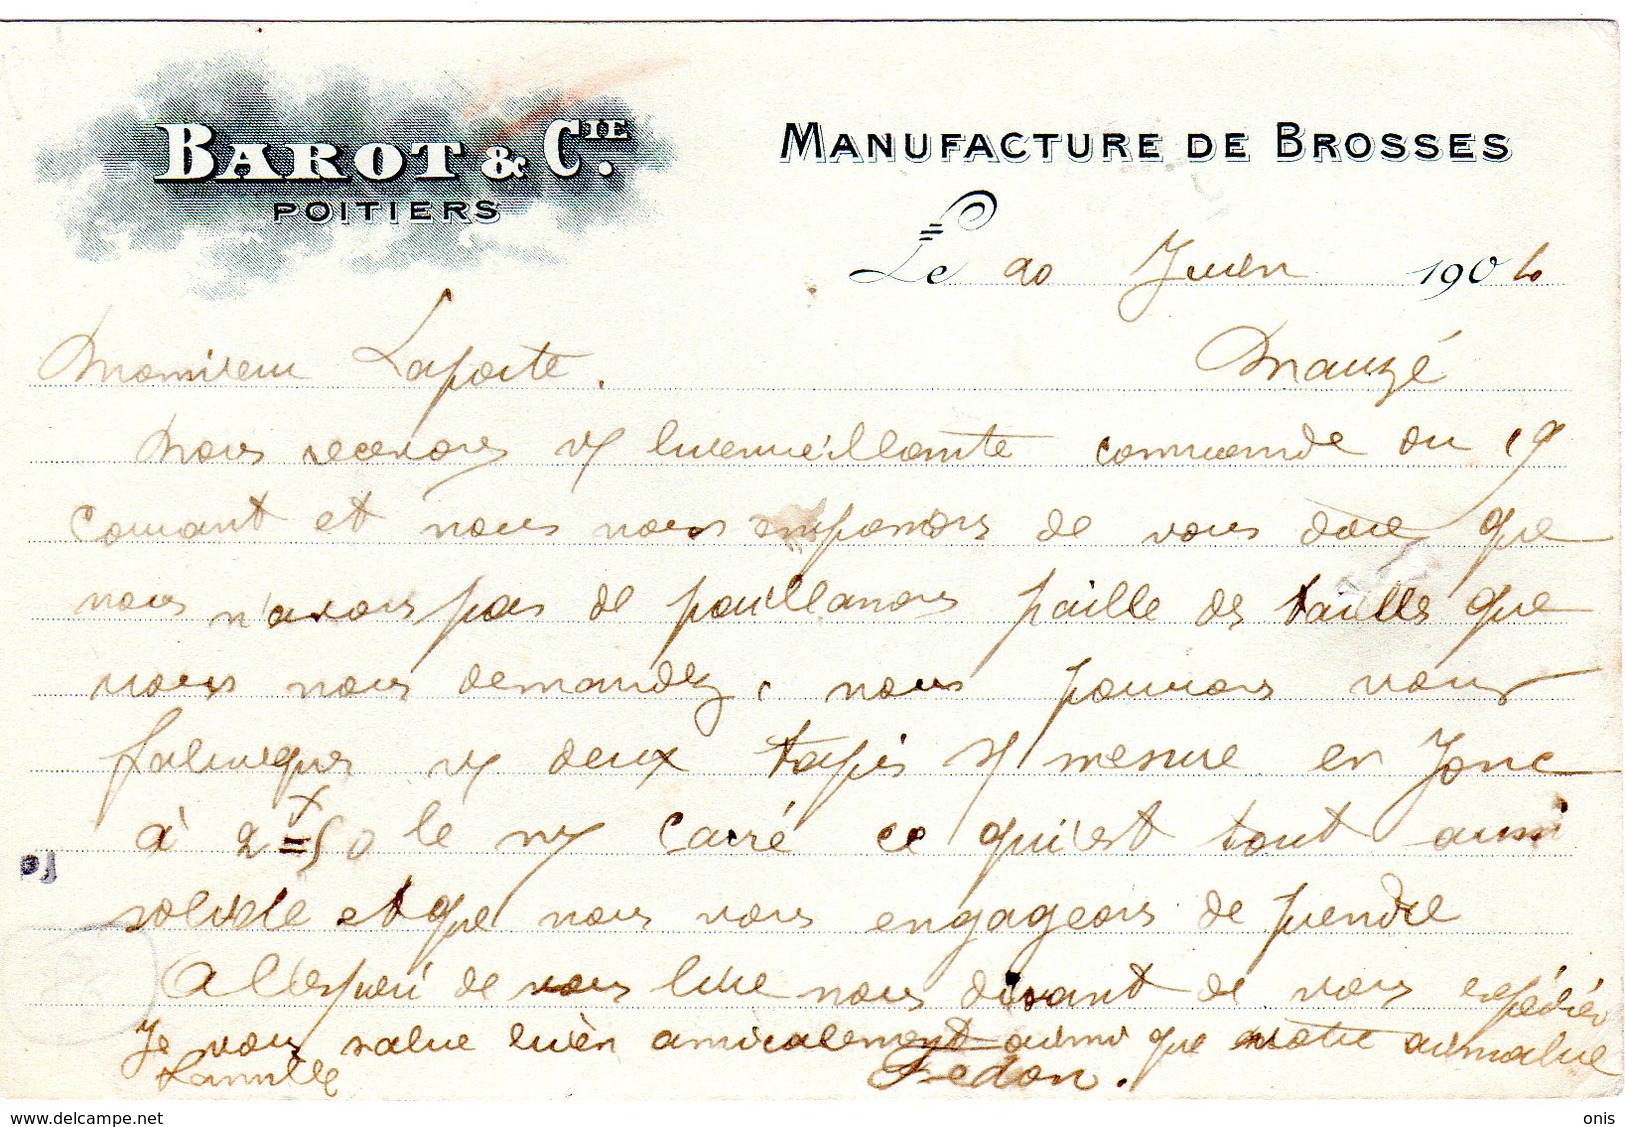 BAROT & CIE.
POITIERS
MANUFACTURE DE BROSSES
Le 20 Juin 1904
Monsieur Laporte. Mauzé
Nous recevons v/ bienveillante commande du 19
Courant et nous nous empressons de vous dire que
nous n'avons pas de paillassons paille des tailles que
vous nous demandez, nous pouvons vous
fabriquer v/ deux tapis s/ mesure en Jonc
à 2 f 50 le m/ Carré ce qui est tout aussi
solide et que nous vous engageons de prendre
A l'espoir de vous lire nous disant de vous expédier
Je vous salue bien amicalement ainsi que votre aimable
famille Fedon.
www.delcampe.net
onis